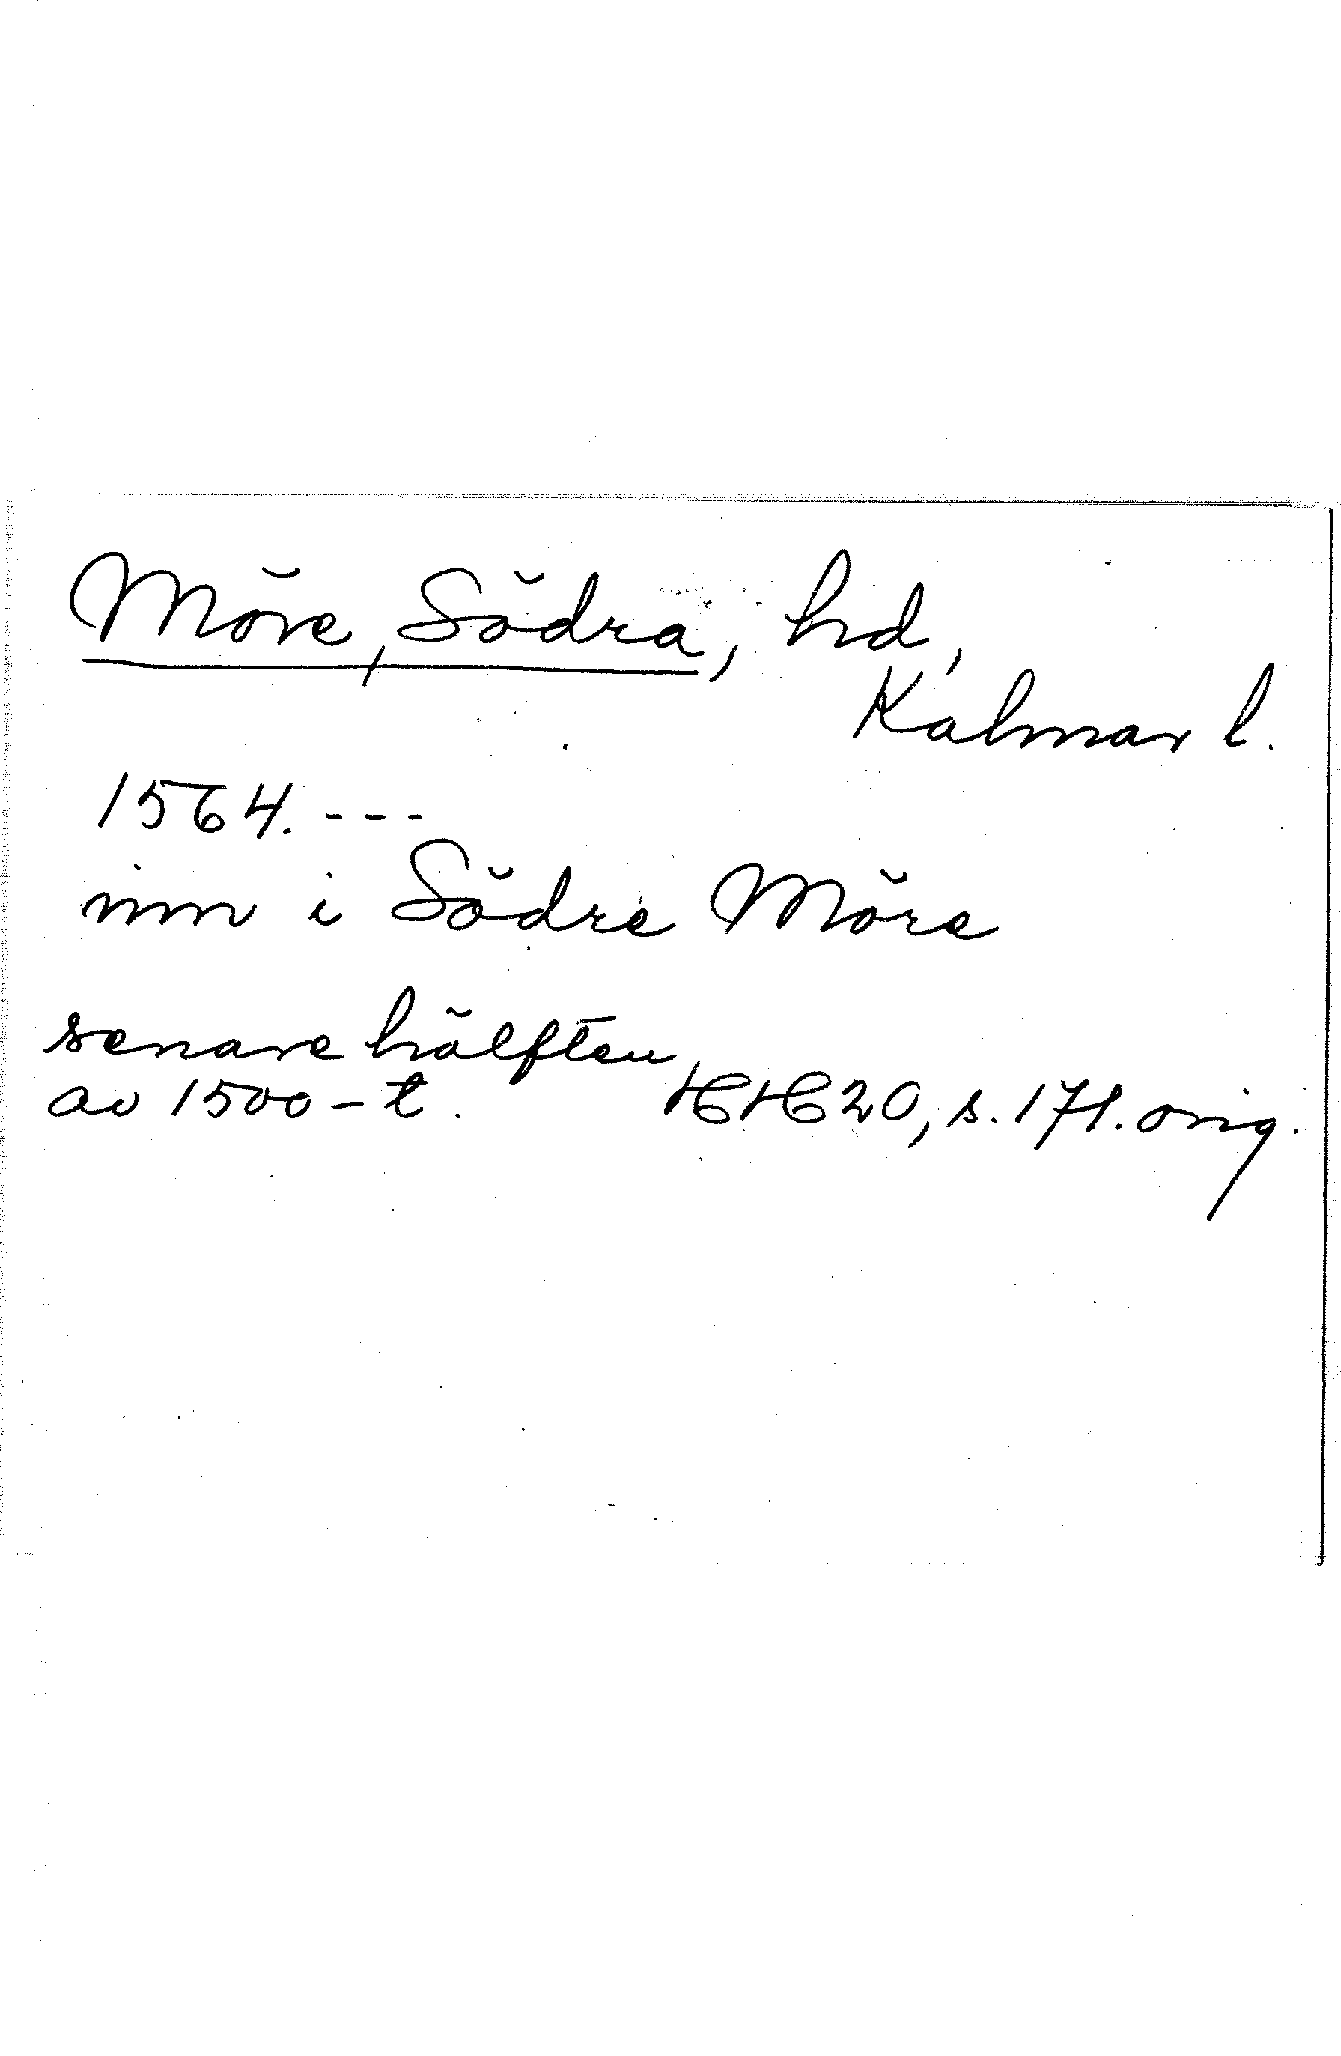 Möre, Södra, hd,
Kalmar l.
1564. ---
inn i Södre Möre
senare hälften
av 1500-t. HH 20, s. 171. orig.